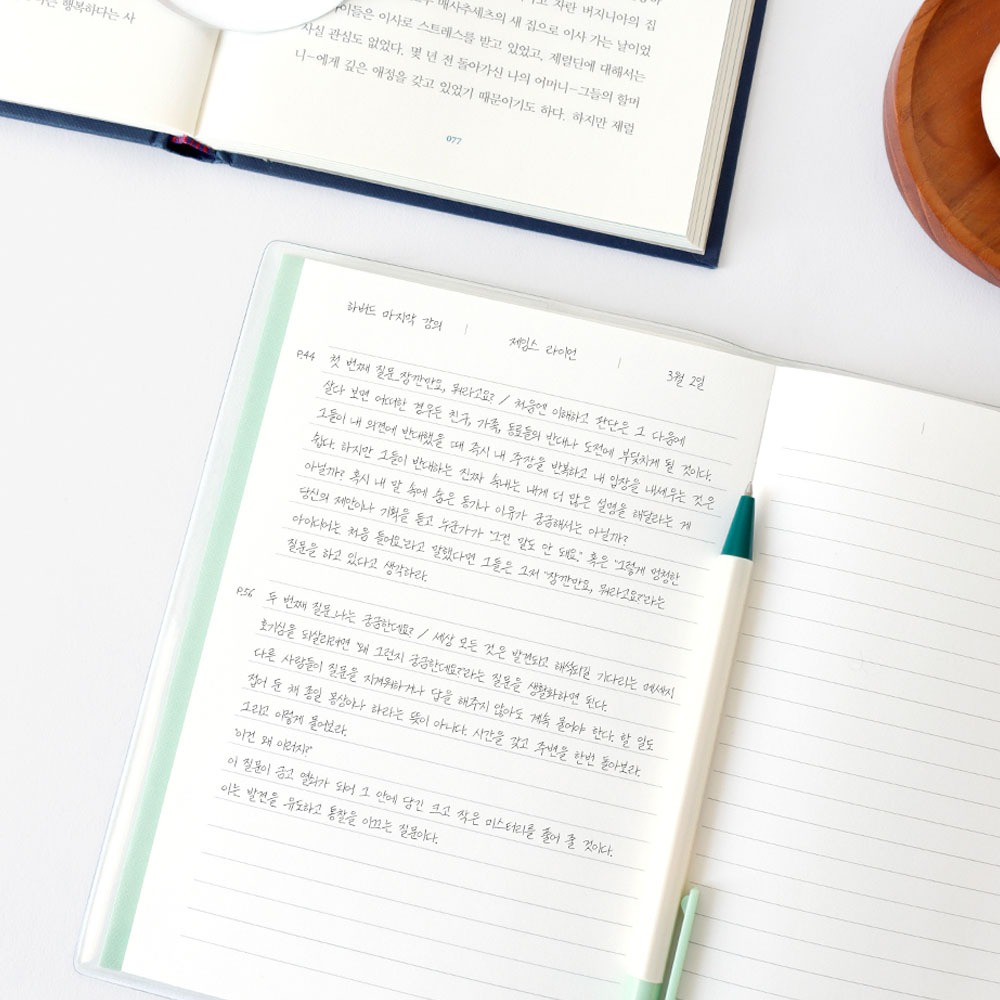 다는 행복하다는 사
매사추세츠의 새 집으로 이사 가는 날이었
이들은 이사로 스트레스를 받고 있었고, 제럴딘에 대해서는
사실 관심도 없었다. 몇 년 전 돌아가신 나의 어머니-그들의 할머
니-에게 깊은 애정을 갖고 있었기 때문이기도 하다. 하지만 제럴
077
하버드 마지막 강의 | 제임스 라이언 | 3월 2일
P.44 첫 번째 질문_잠깐만요, 뭐라고요? / 처음엔 이해하고 판단은 그 다음에
살다 보면 어떠한 경우든 친구, 가족, 동료들의 반대나 도전에 부딪치게 될 것이다.
그들이 내 의견에 반대했을 때 즉시 내 주장을 반복하고 내 입장을 내세우는 것은
쉽다. 하지만 그들이 반대하는 진짜 속내는 내게 더 많은 설명을 해달라는 게
아닐까? 혹시 내 말 속에 숨은 동기나 이유가 궁금해서는 아닐까?
당신의 제안이나 기획을 듣고 누군가가 "그건 말도 안 돼요." 혹은 "그렇게 멍청한
아이디어는 처음 들어요."라고 말했다면 그들은 그저 "잠깐만요, 뭐라고요?"라는
질문을 하고 있다고 생각하라.
P.56 두 번째 질문_나는 궁금한데요? / 세상 모든 것은 발견되고 해석되길 기다리는 메세지
호기심을 되살리려면 "왜 그런지 궁금한데요?"라는 질문을 생활화하면 된다.
다른 사람들이 질문을 지겨워하거나 답을 해주지 않아도 계속 물어야 한다. 할 일도
접어 둔 채 종일 몽상이나 하라는 뜻이 아니다. 시간을 갖고 주변을 한번 돌아보라.
그리고 이렇게 물어보라.
"이건 왜 이러지?"
이 질문이 곧 열쇠가 되어 그 안에 담긴 크고 작은 미스터리를 풀어 줄 것이다.
이는 발견을 유도하고 통찰을 이끄는 질문이다.